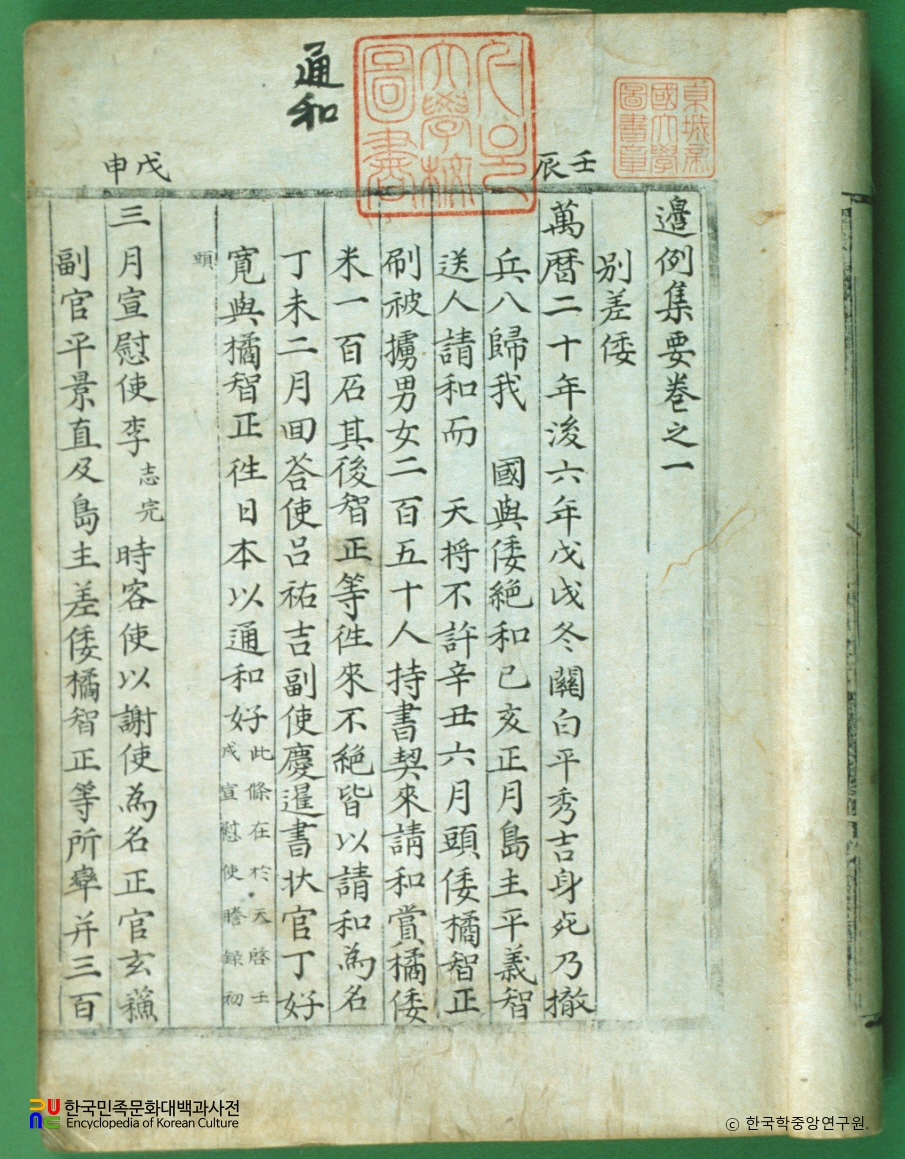 通和
壬辰
戊申
邉例集要卷之一
別差倭
萬曆二十年後六年戊戌冬關白平秀吉身死乃撤
兵八歸我 國與倭絕和己亥正月島主平義智
送人請和而 天將不許辛丑六月頭倭橘智正
刷被擄男女二百五十人持書契來請和賞橘倭
米一百石其後智正等徃來不絕皆以請和為名
丁未二月回荅使呂祐吉副使慶暹書狀官丁好
寛與橘智正徃日本以通和好此條在於天啓壬
戌宣慰使謄録初
頭
三月宣慰使李志完時客使以謝使為名正官玄蘓
副官平景直及島主差倭橘智正等所率并三百
한국민족문화대백과사전
Encyclopedia of Korean Culture
© 한국학중앙연구원.